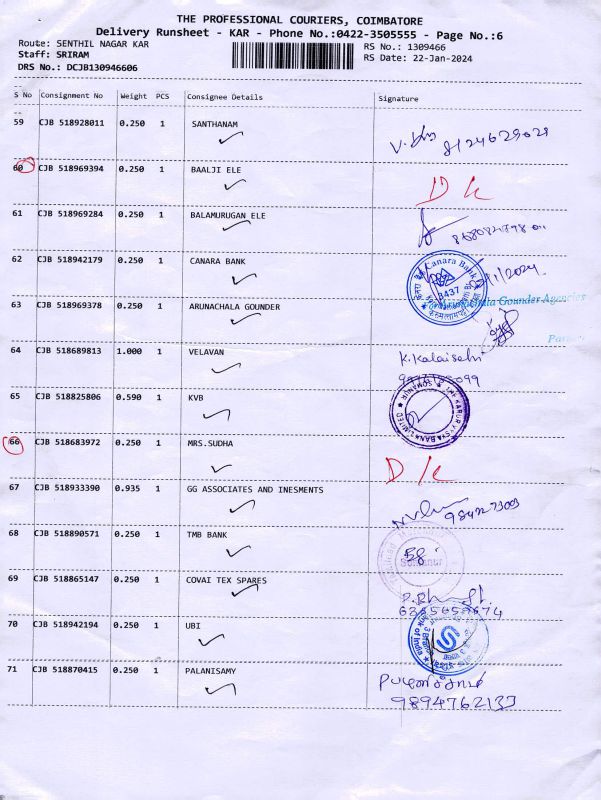 THE PROFESSIONAL COURIERS, COIMBATORE
Delivery Runsheet - KAR - Phone No.:0422-3505555 - Page No.:6
Route: SENTHIL NAGAR KAR RS No.: 1309466
Staff: SRIRAM RS Date: 22-Jan-2024
DRS No.: DCJB130946606
S No Consignment No Weight PCS Consignee Details Signature
59 CJB 518928011 0.250 1 SANTHANAM
60 CJB 518969394 0.250 1 BAALJI ELE
D/L
61 CJB 518969284 0.250 1 BALAMURUGAN ELE
62 CJB 518942179 0.250 1 CANARA BANK
Canara Bank
8437
63 CJB 518969378 0.250 1 ARUNACHALA GOUNDER
Arunachala Gounder Agencies
64 CJB 518689813 1.000 1 VELAVAN
65 CJB 518825806 0.590 1 KVB
66 CJB 518683972 0.250 1 MRS.SUDHA
D/L
67 CJB 518933390 0.935 1 GG ASSOCIATES AND INESMENTS
68 CJB 518890571 0.250 1 TMB BANK
69 CJB 518865147 0.250 1 COVAI TEX SPARES
70 CJB 518942194 0.250 1 UBI
71 CJB 518870415 0.250 1 PALANISAMY